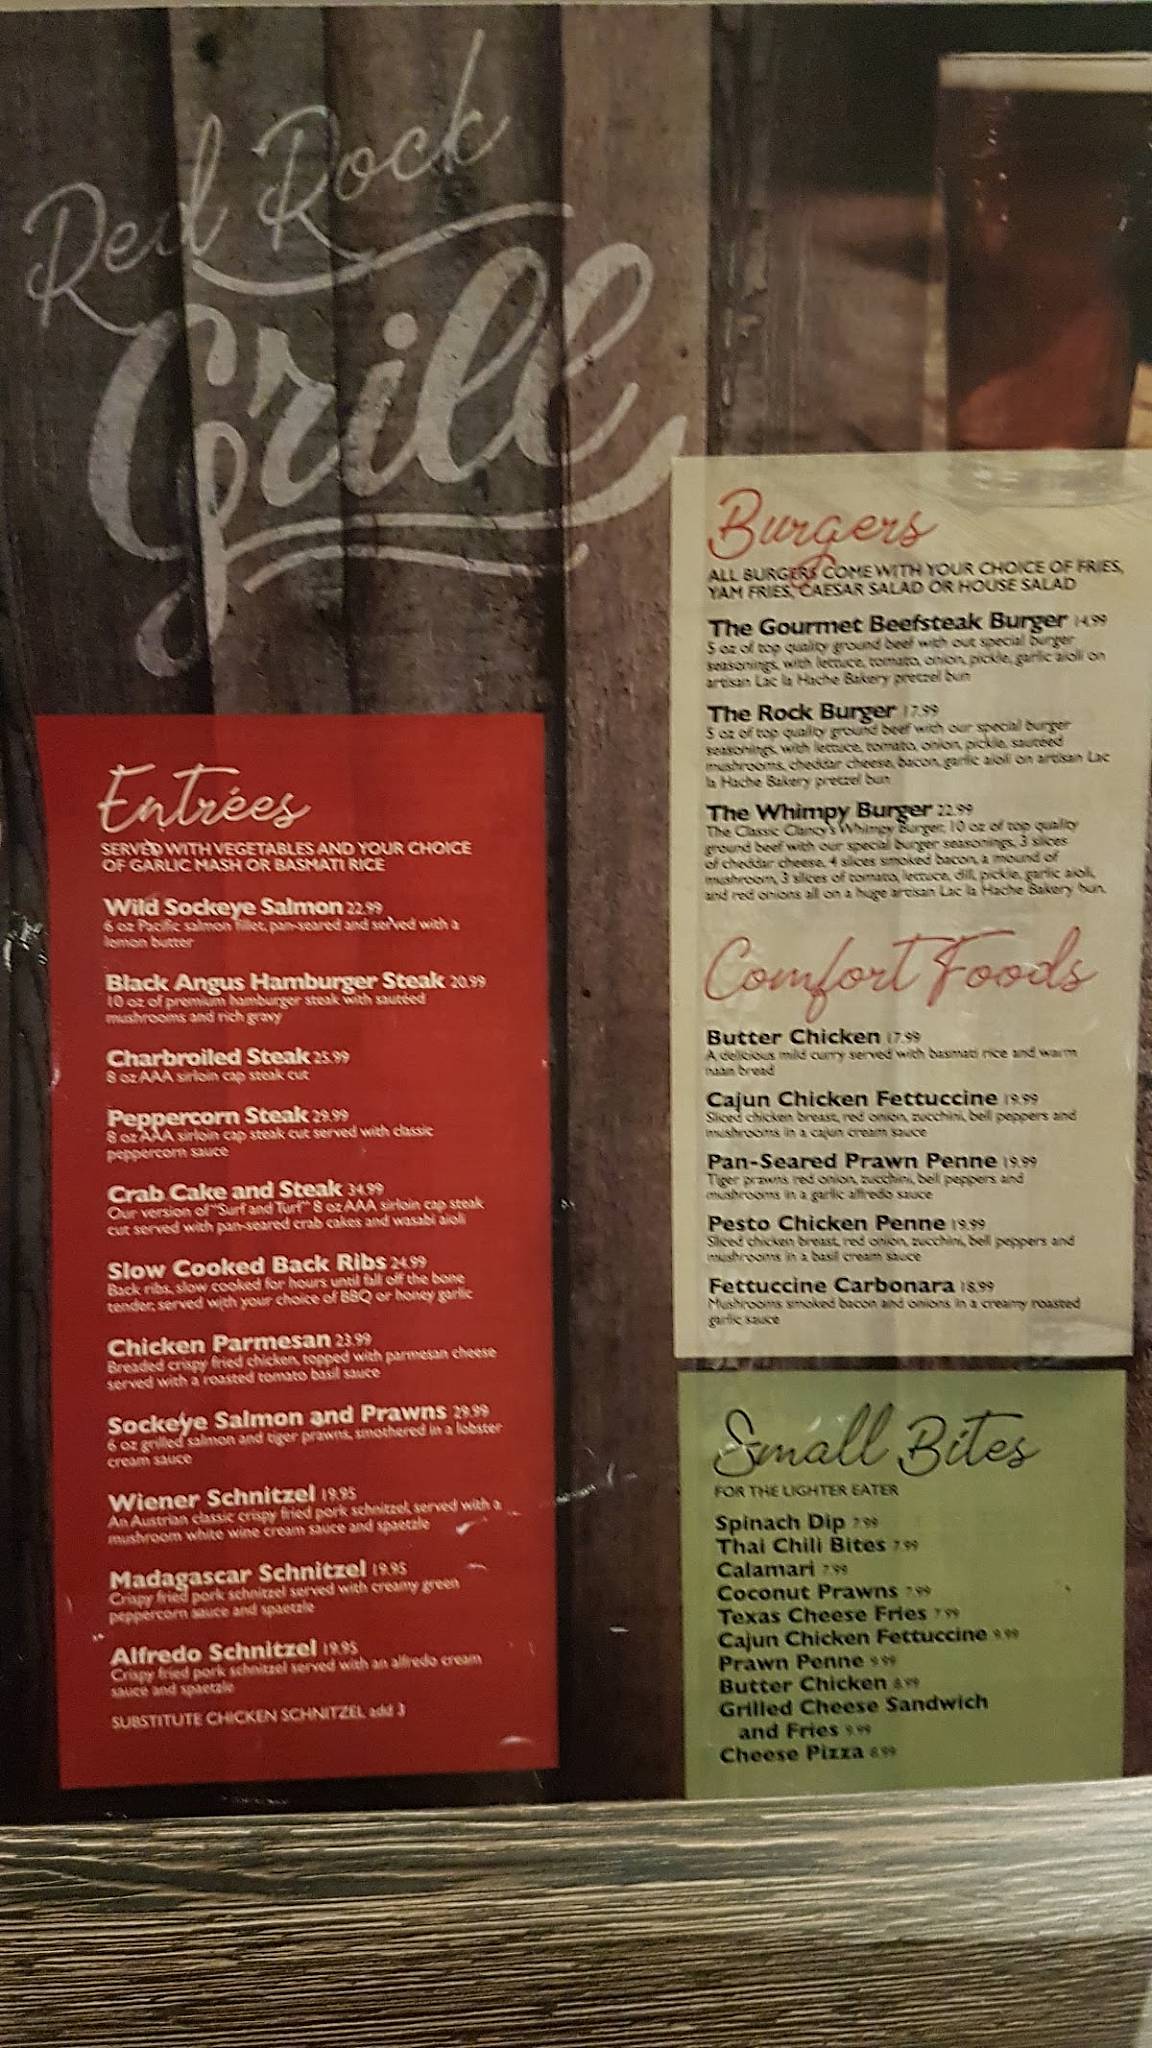 Red Rock
Grill
Entrées
SERVED WITH VEGETABLES AND YOUR CHOICE
OF GARLIC MASH OR BASMATI RICE
Wild Sockeye Salmon 22.99
6 oz Pacific salmon fillet, pan-seared and served with a
lemon butter
Black Angus Hamburger Steak 20.99
10 oz of premium hamburger steak with sautéed
mushrooms and rich gravy
Charbroiled Steak 25.99
8 oz AAA sirloin cap steak cut
Peppercorn Steak 29.99
8 oz AAA sirloin cap steak cut served with classic
peppercorn sauce
Crab Cake and Steak 34.99
Our version of "Surf and Turf" 8 oz AAA sirloin cap steak
cut served with pan-seared crab cakes and wasabi aioli
Slow Cooked Back Ribs 24.99
Back ribs, slow cooked for hours until fall off the bone
tender, served with your choice of BBQ or honey garlic
Chicken Parmesan 23.99
Breaded crispy fried chicken, topped with parmesan cheese
served with a roasted tomato basil sauce
Sockeye Salmon and Prawns 29.99
6 oz grilled salmon and tiger prawns, smothered in a lobster
cream sauce
Wiener Schnitzel 19.95
An Austrian classic crispy fried pork schnitzel, served with a
mushroom white wine cream sauce and spaetzle
Madagascar Schnitzel 19.95
Crispy fried pork schnitzel served with creamy green
peppercorn sauce and spaetzle
Alfredo Schnitzel 19.95
Crispy fried pork schnitzel served with an alfredo cream
sauce and spaetzle
SUBSTITUTE CHICKEN SCHNITZEL add 3
Burgers
ALL BURGERS COME WITH YOUR CHOICE OF FRIES,
YAM FRIES, CAESAR SALAD OR HOUSE SALAD
The Gourmet Beefsteak Burger 14.99
5 oz of top quality ground beef with out special burger
seasonings, with lettuce, tomato, onion, pickle, garlic aioli on
artisan Lac la Hache Bakery pretzel bun
The Rock Burger 17.99
5 oz of top quality ground beef with our special burger
seasonings, with lettuce, tomato, onion, pickle, sautéed
mushrooms, cheddar cheese, bacon, garlic aioli on artisan Lac
la Hache Bakery pretzel bun
The Whimpy Burger 22.99
The Classic Clancy's Whimpy Burger, 10 oz of top quality
ground beef with our special burger seasonings, 3 slices
of cheddar cheese, 4 slices smoked bacon, a mound of
mushroom, 3 slices of tomato, lettuce, dill, pickle, garlic aioli,
and red onions all on a huge artisan Lac la Hache Bakery bun.
Comfort Foods
Butter Chicken 17.99
A delicious mild curry served with basmati rice and warm
naan bread
Cajun Chicken Fettuccine 19.99
Sliced chicken breast, red onion, zucchini, bell peppers and
mushrooms in a cajun cream sauce
Pan-Seared Prawn Penne 19.99
Tiger prawns red onion, zucchini, bell peppers and
mushrooms in a garlic alfredo sauce
Pesto Chicken Penne 19.99
Sliced chicken breast, red onion, zucchini, bell peppers and
mushrooms in a basil cream sauce
Fettuccine Carbonara 18.99
Mushrooms smoked bacon and onions in a creamy roasted
garlic sauce
Small Bites
FOR THE LIGHTER EATER
Spinach Dip 7.99
Thai Chili Bites 7.99
Calamari 7.99
Coconut Prawns 7.99
Texas Cheese Fries 7.99
Cajun Chicken Fettuccine 9.99
Prawn Penne 9.99
Butter Chicken 8.99
Grilled Cheese Sandwich
and Fries
Cheese Pizza 8.99